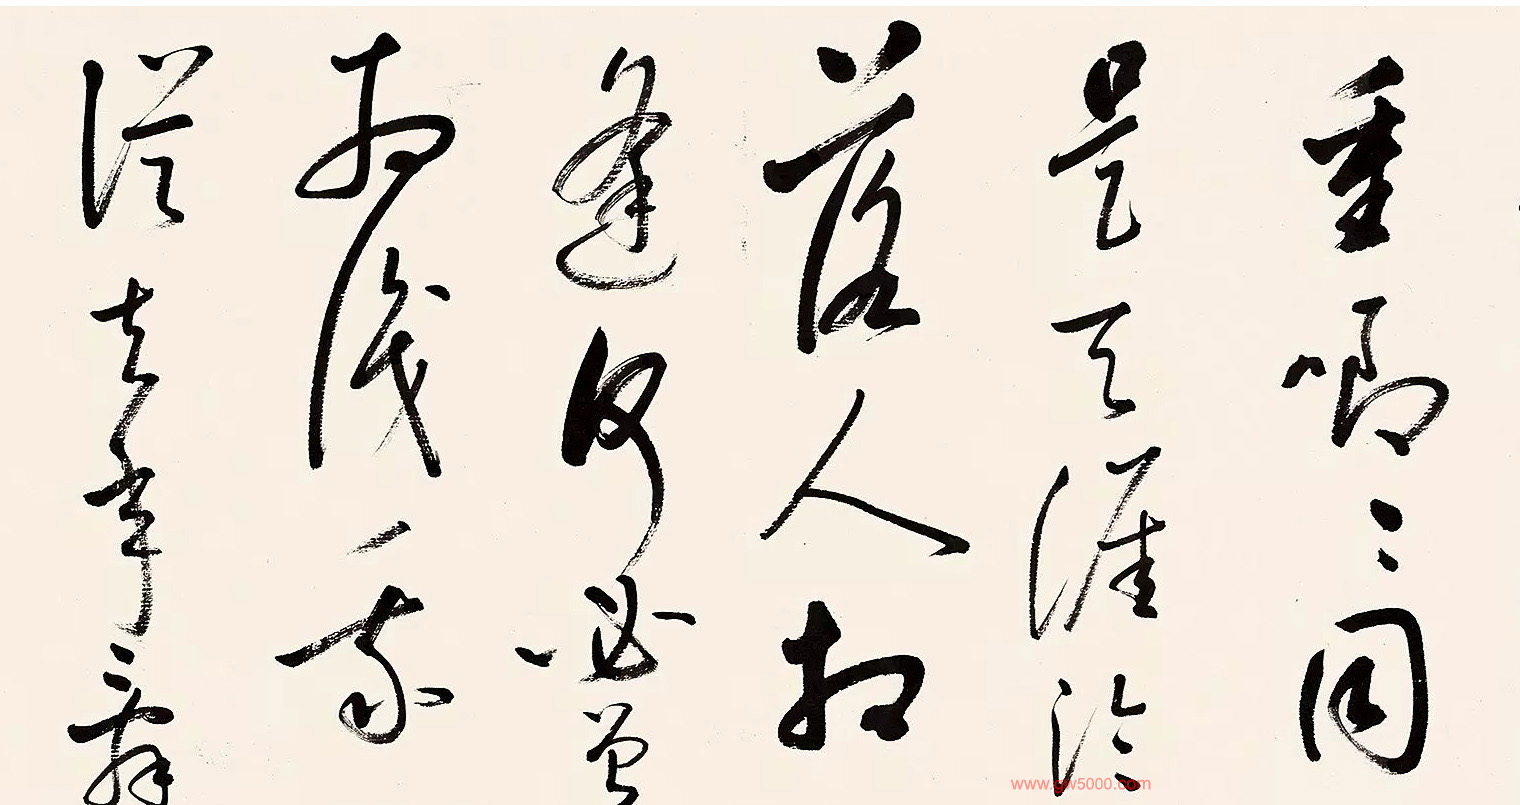 重唧々同
是天涯淪
落人相
逢何必曾
相識我
從去年辭
www.gw5000.com